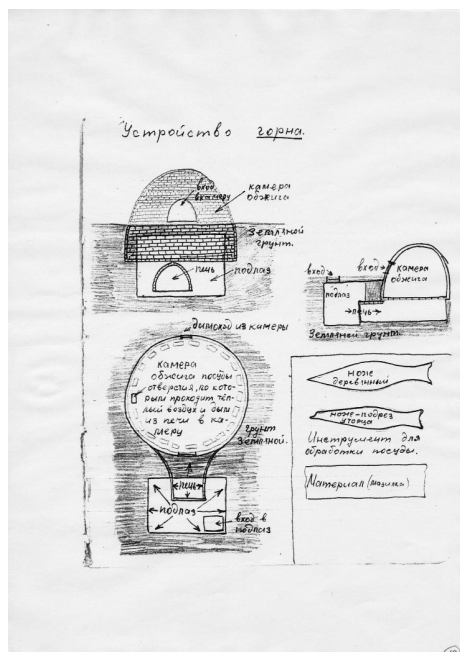 Устройство горна.
вход
в камеру
камера
обжига
Земляной
грунт.
печь
подлаз
вход
вход
камера
обжига
подлаз
печь
Земляной грунт.
дымоход из камеры
камера
обжига посуды
отверстия, по кото-
рым проходит тёп-
лый воздух и дым
из печи в ка-
меру
Грунт
Земляной.
печь
подлаз
вход в
подлаз
нож
деревянный
нож-подрез
Инструмент для
обработки посуды.
Материал